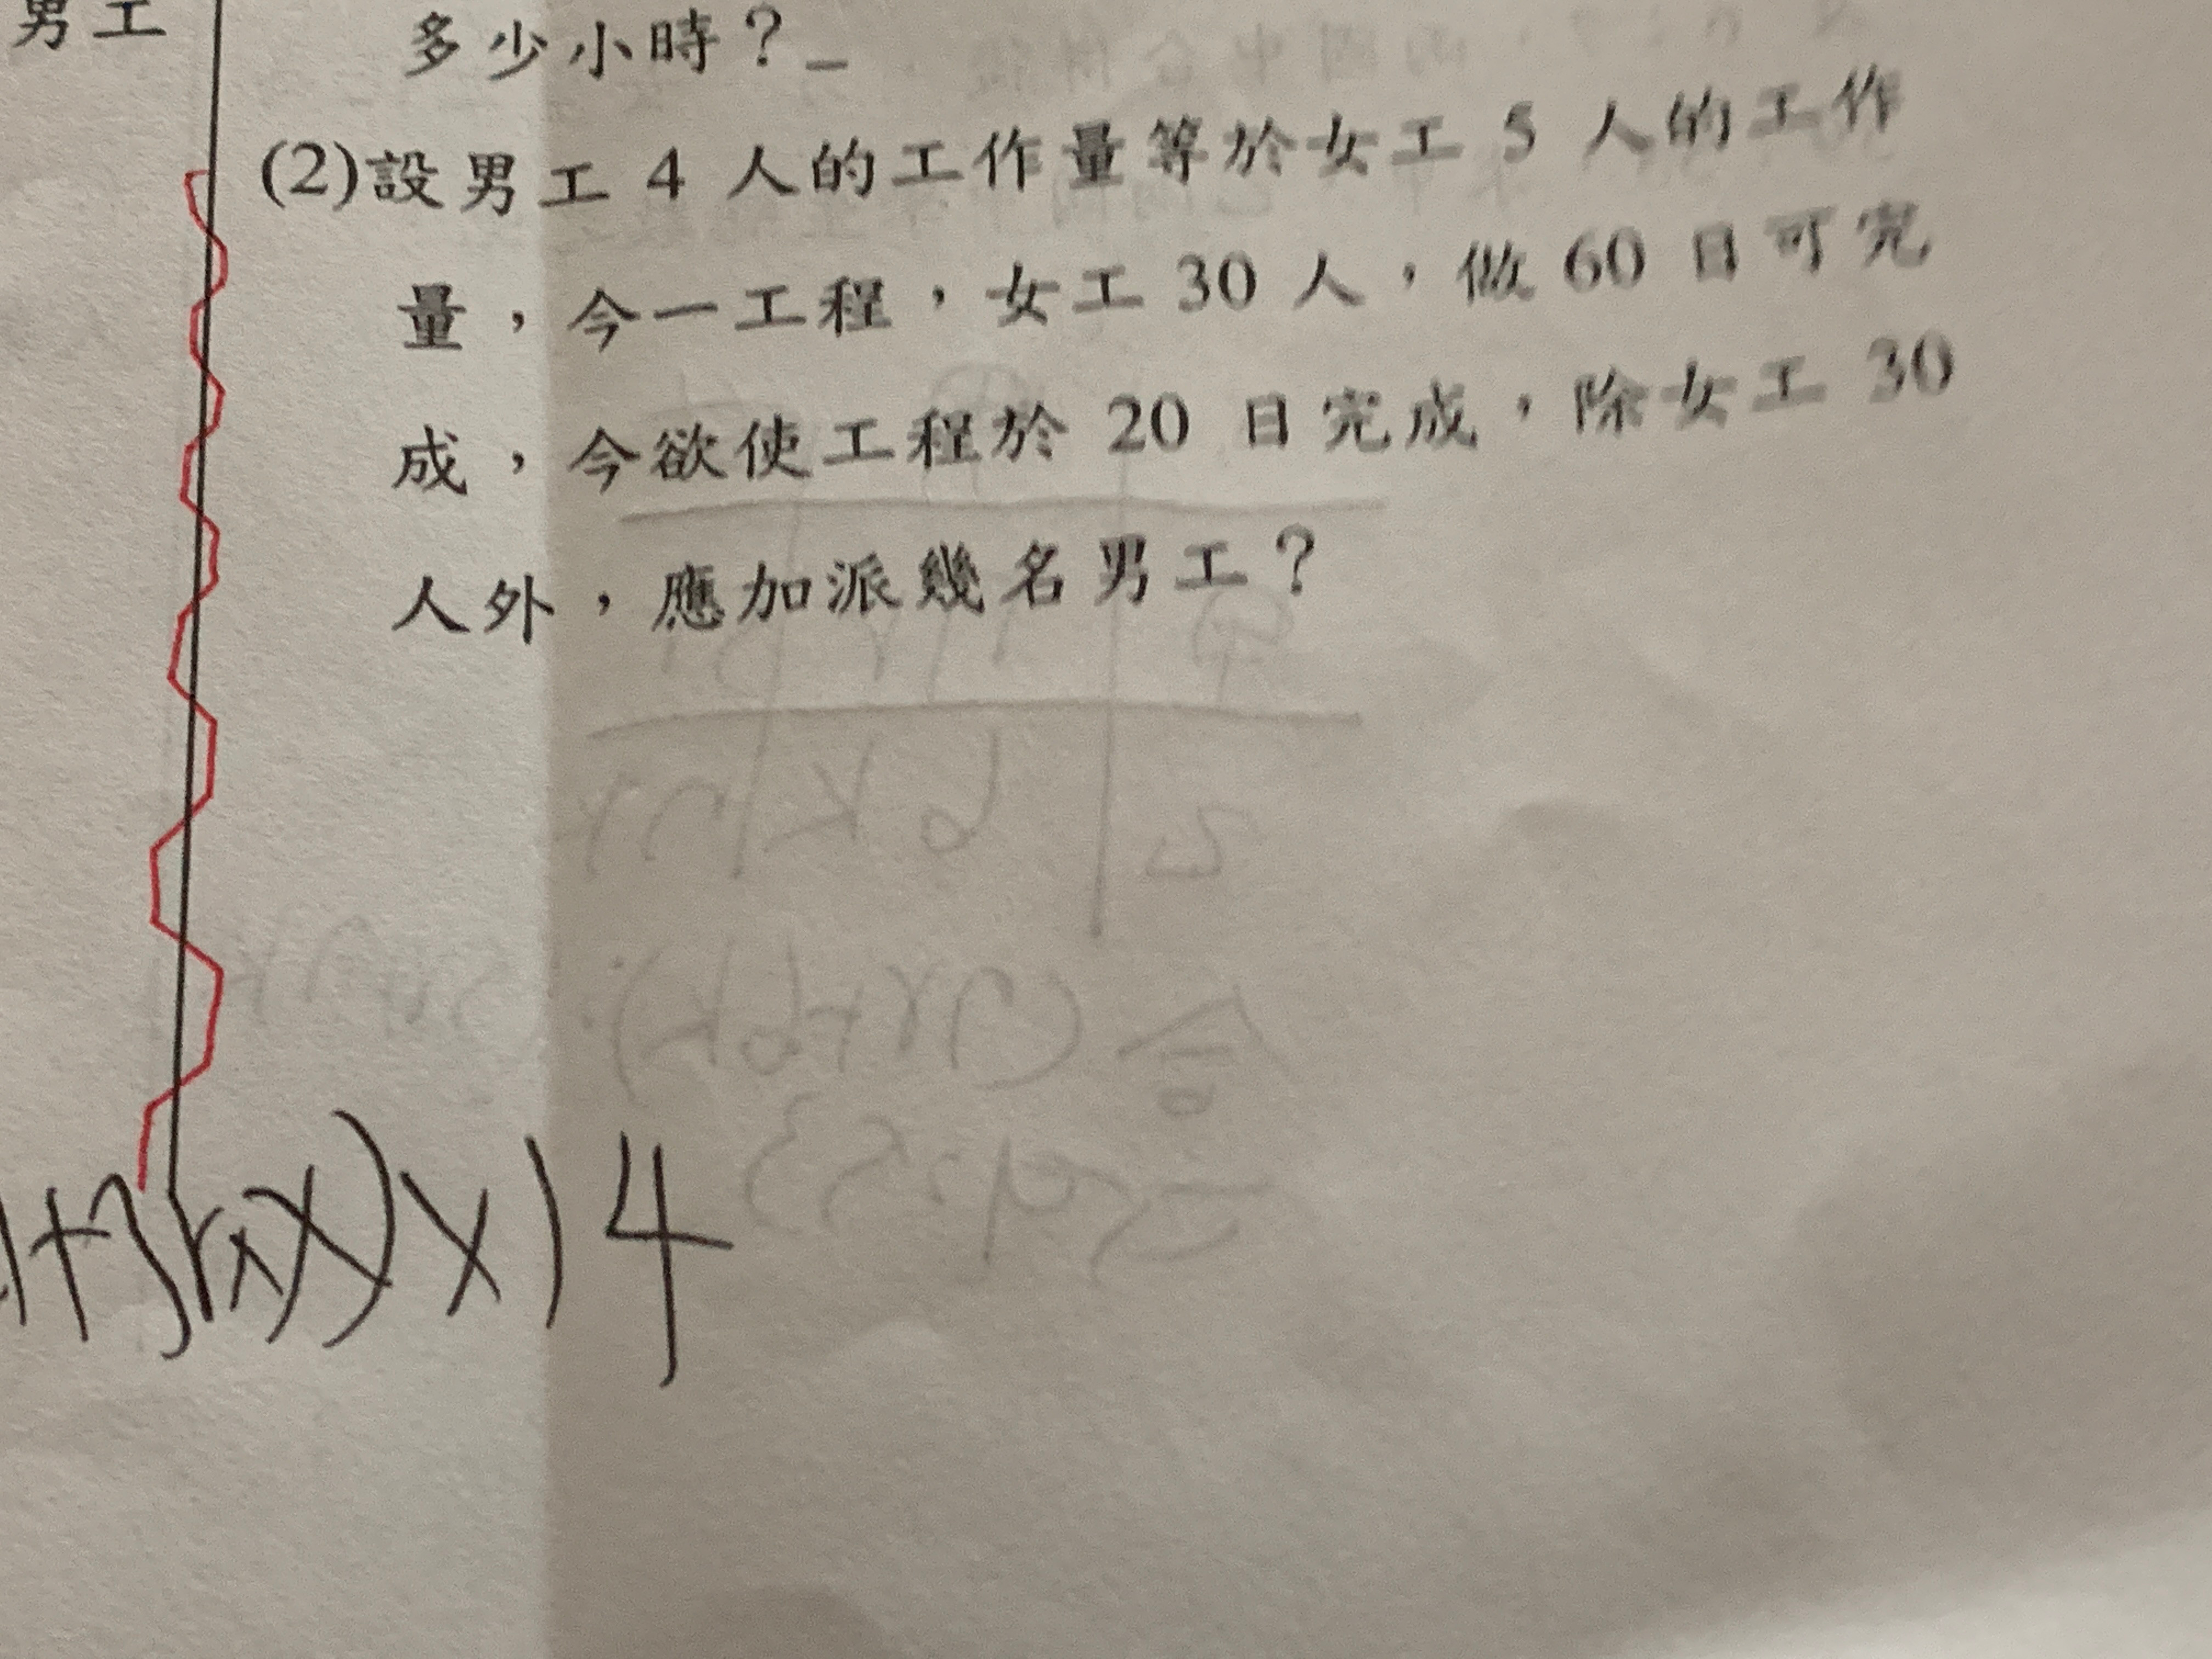 男工
多少小時？
(2)設男工 4 人的工作量等於女工 5 人的工作
量，今一工程，女工 30 人，做 60 日可完
成，今欲使工程於 20 日完成，除女工 30
人外，應加派幾名男工？